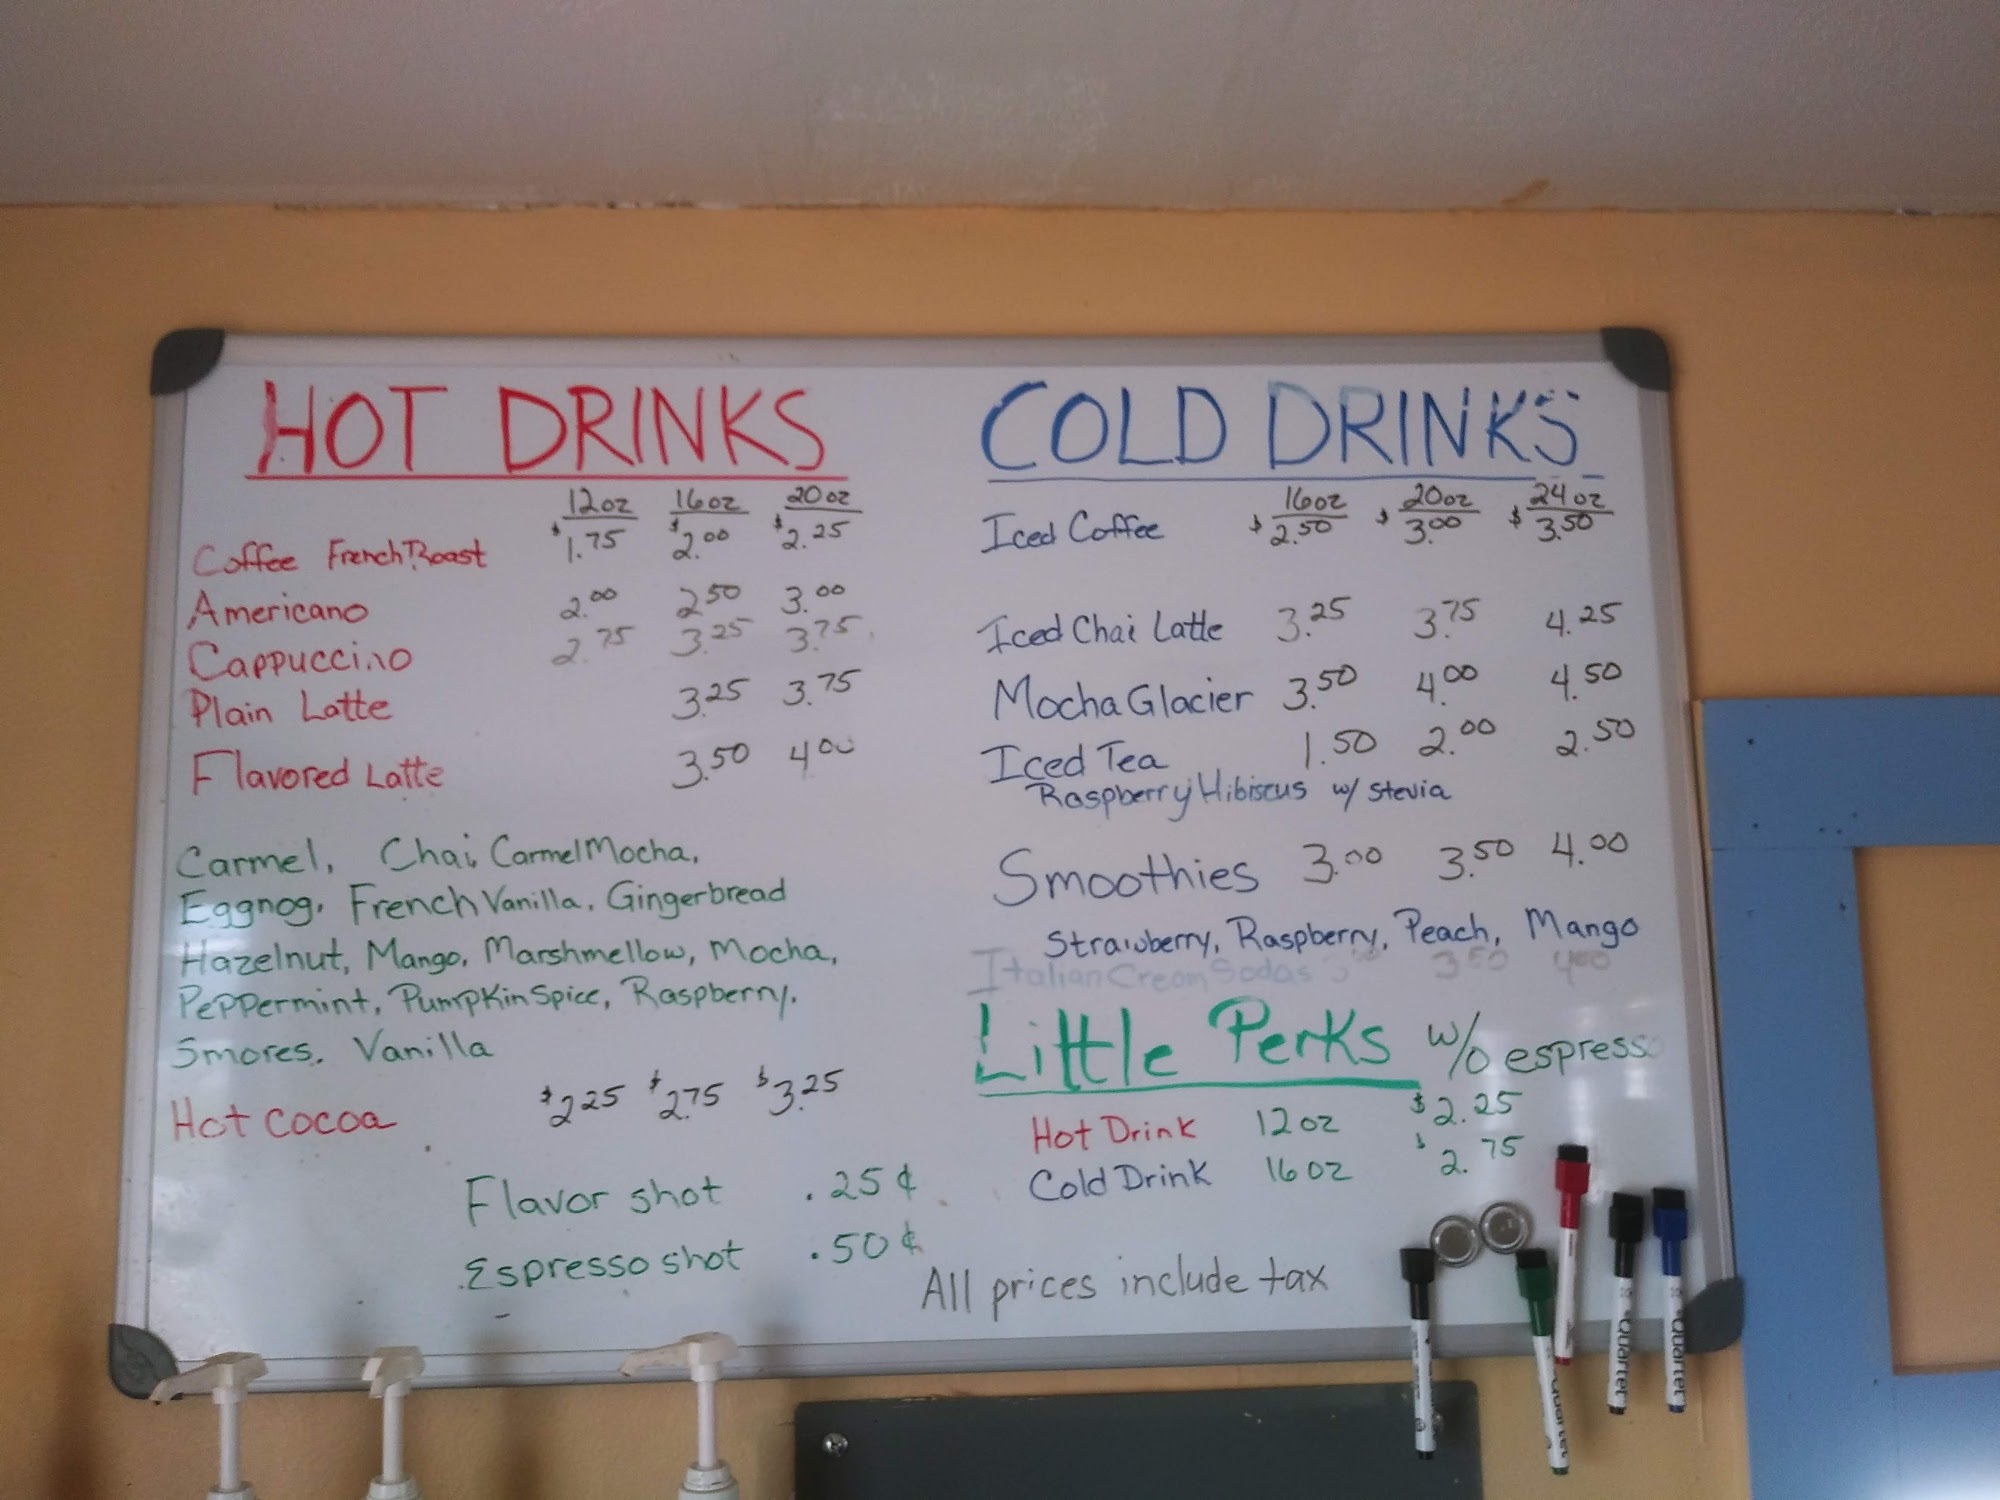 HOT DRINKS
12oz 16oz 20oz
Coffee French Roast $1.75 $2.00 $2.25
Americano 2.00 2.50 3.00
Cappuccino 2.75 3.25 3.75
Plain Latte 3.25 3.75
Flavored Latte 3.50 4.00
Carmel, Chai, Carmel Mocha,
Eggnog, French Vanilla, Gingerbread
Hazelnut, Mango, Marshmellow, Mocha,
Peppermint, Pumpkin Spice, Raspberry,
Smores, Vanilla
Hot Cocoa $2.25 $2.75 $3.25
Flavor shot .25¢
Espresso shot .50¢
COLD DRINKS
16oz 20oz 24oz
Iced Coffee $2.50 $3.00 $3.50
Iced Chai Latte 3.25 3.75 4.25
Mocha Glacier 3.50 4.00 4.50
Iced Tea 1.50 2.00 2.50
Raspberry Hibiscus w/ Stevia
Smoothies 3.00 3.50 4.00
Strawberry, Raspberry, Peach, Mango
Italian Cream Sodas 3.50 4.00
Little Perks w/o espresso
Hot Drink 12oz $2.25
Cold Drink 16oz $2.75
All prices include tax
Quartet
Quartet